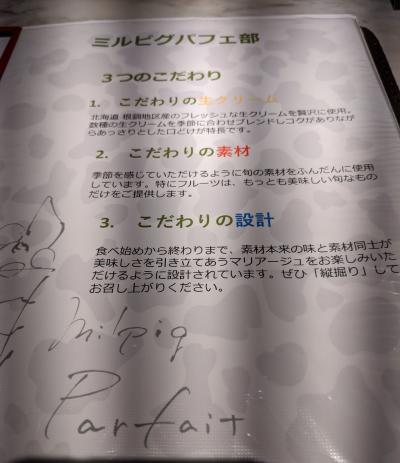 ミルピグパフェ部
３つのこだわり
1. こだわりの生クリーム
北海道 根釧地区産のフレッシュな生クリームを贅沢に使用。
数種の生クリームを季節に合わせブレンドしコクがありなが
らあっさりとした口どけが特長です。
2. こだわりの素材
季節を感じていただけるように旬の素材をふんだんに使用
しています。特にフルーツは、もっとも美味しい旬なもの
だけをご提供します。
3. こだわりの設計
食べ始めから終わりまで、素材本来の味と素材同士が
美味しさを引き立てあうマリアージュをお楽しみいた
だけるように設計されています。ぜひ「縦掘り」して
お召し上がりください。
milpig
Parfait